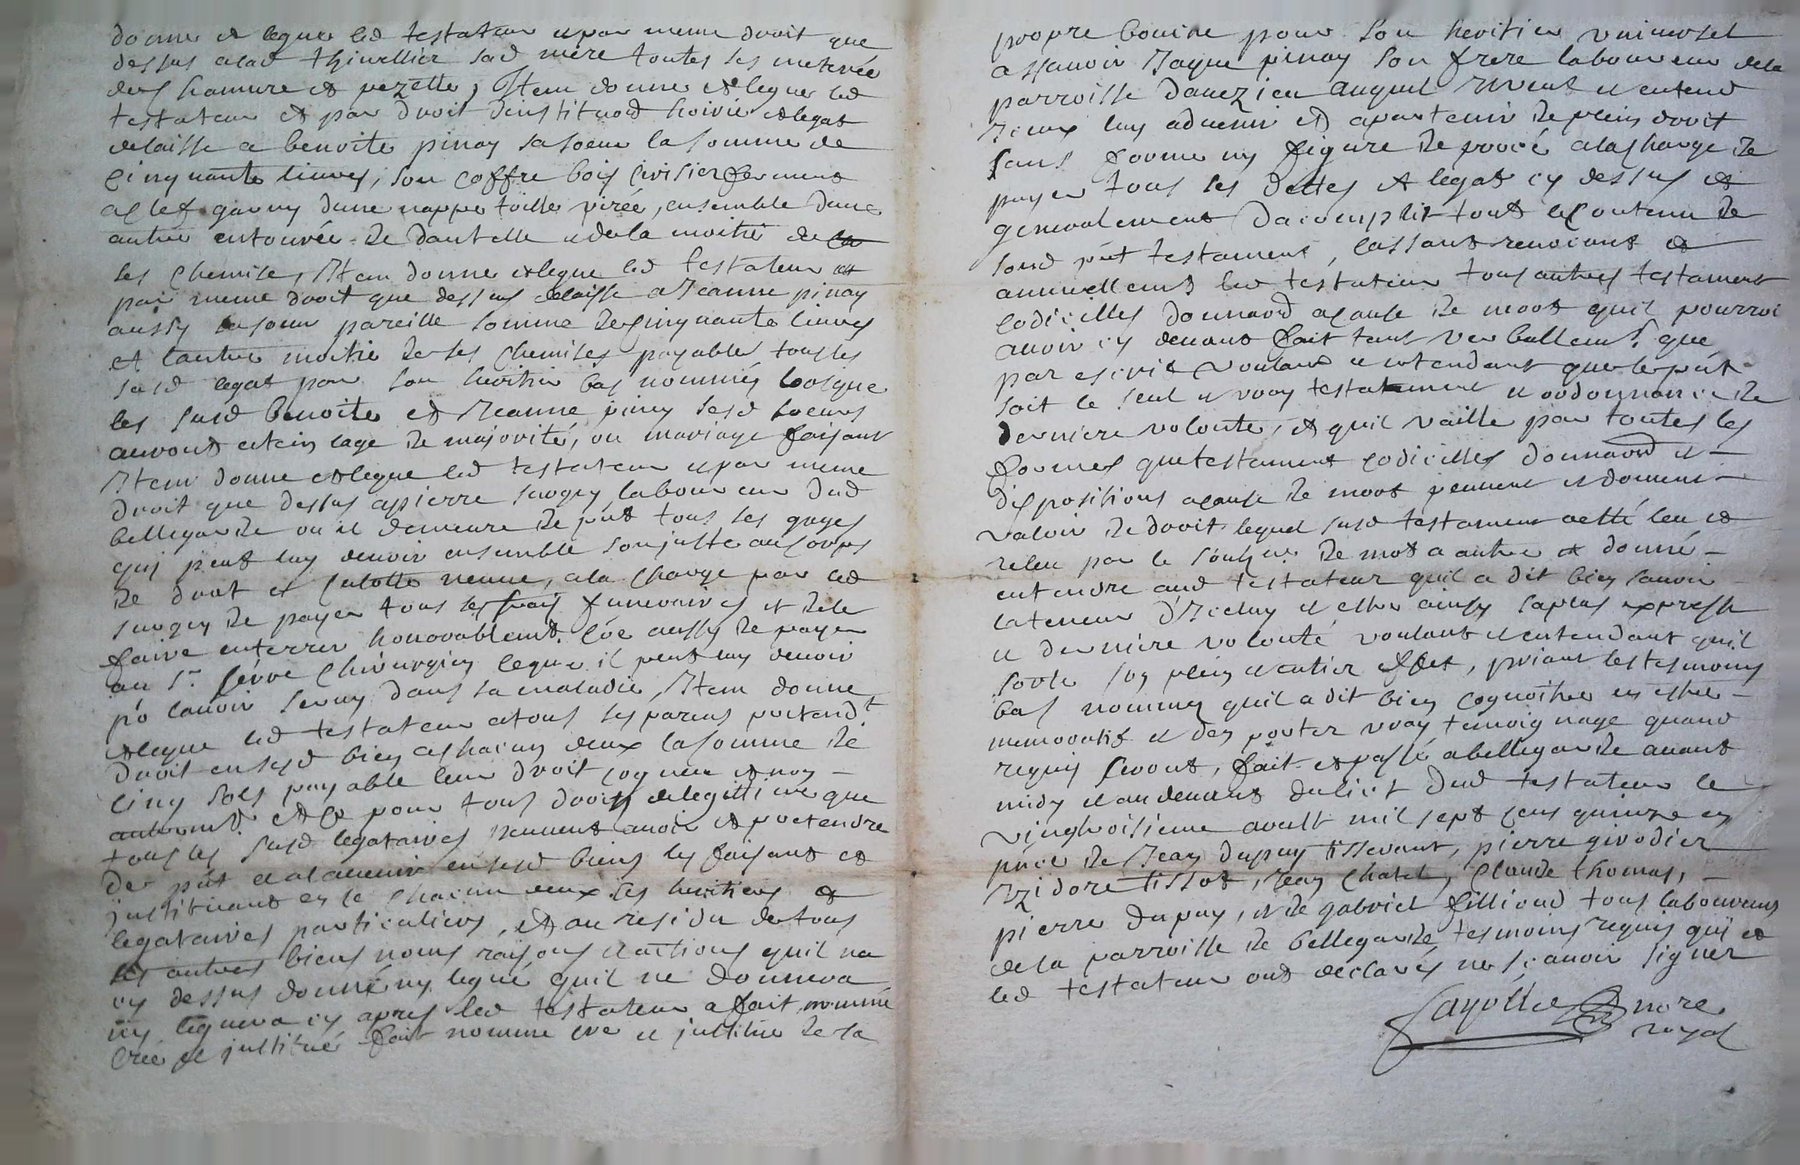 donne et legue led testateur et par meme droit que
dessus a lad thivellier sad mere toutes ses
de chanure et pezette, Item donne et legue led
testateur et par droit dinstitu[on] hoirie et legat
delaisse a benoite pinay sa soeur la somme de
cinquante livres, son coffre bois fermant
a clef garny dune nappe toille, ensemble dune
autre entourée de dantelle et de la moitié de
ses chemise, Item donne et legue led testateur et
par meme droit que dessus delaisse a Jeanne pinay
aussy sa soeur pareille somme de cinquante livres
et lautre moitié de ses chemises payables tous les
susd legat par son heritier bas nommés lorsque
les susd benoite et Jeanne pinay sesd soeurs
auront attein lage de majorité, ou mariage faisant
Item donne et legue led testateur et par meme
droit que dessus a pierre laboureur dud
bellegarde ou il demeure de pnt tous les gages
qui peut luy devoir ensemble son juste au corps
de drat et culotte neuve, a la charge par led
de payer tous les frais funeraires et de le
faire enterrer honorablemt. Côe aussy de payer
au Sr. chirurgien ce que il peut luy devoir
pr lavoir servy dans sa maladie, Item donne
et legue led testateur a tous ses parens pretendt
droit en sesd bien a chacun deux la somme de
cinq sols payable leur droit cogneu et non
autremt. et ce pour tous droits de legitime que
tous les susd legataires peuvent avoir et pretendre
de pnt et a lavenir en sesd biens les faisant et
instituant en ce chacun deux ses heritiers et
legataires particuliers, et au residu de tous
ses autres biens noms raisons et actions quil na
cy dessus donné ny legué quil ne donnera
ny leguera cy apres led testateur a fait nommé
créé et institué fait nomme cre et institue de sa
propre bouche pour son heritier universel
assavoir Jaque pinay son frere laboureur de la
parroisse davezieu auquel il entend
iceux luy advenir et apartenir de plein droit
sans forme ny figure de procé a la charge de
payer tous ses dettes et legats cy dessus et
generalement daccomplir tout le contenu de
sond pnt testament, cassant revocant et
annullemt led testateur tous autres testament
codicilles donnaõn a cause de mort quil pourroit
avoir cy devant fait tant verballemt. que
par escrit voulant et entendant que le pnt
soit le seul et vray testatement et ordonnance de
derniere volonté, et quil vaille par toutes les
formes que testament codicilles donnaõn et
dispositions a cause de mort peuvent et doivent
valoir de droit lequel susd testament a esté leu et
releu par le soubs.né de mot a autre et donné
entendre aud testateur quil a dit bien savoir
la teneur dicelluy et estre ainsy sa plus expresse
et derniere volonté voulant et entendant quil
sorte son plein et entier effet, priant les tesmoins
bas nommes quil a dit bien cognoitre en estre
memoratif et den porter vray temoignage quand
requis seront, fait et passé a bellegarde avant
midy et au devant du lict dud testateur le
vingtroisieme aoust mil sept cens quinze en
pnce de Jean dupuy tisserant, pierre girodier
Izidore tissot, Jean chatel, Claude thomas,
pierre dupuy, et de gabriel fillioud tous laboureurs
de la parroisse de bellegarde tesmoins requis qui et
led testateur ont declarés ne scavoir signer
Cayollet nore
royal